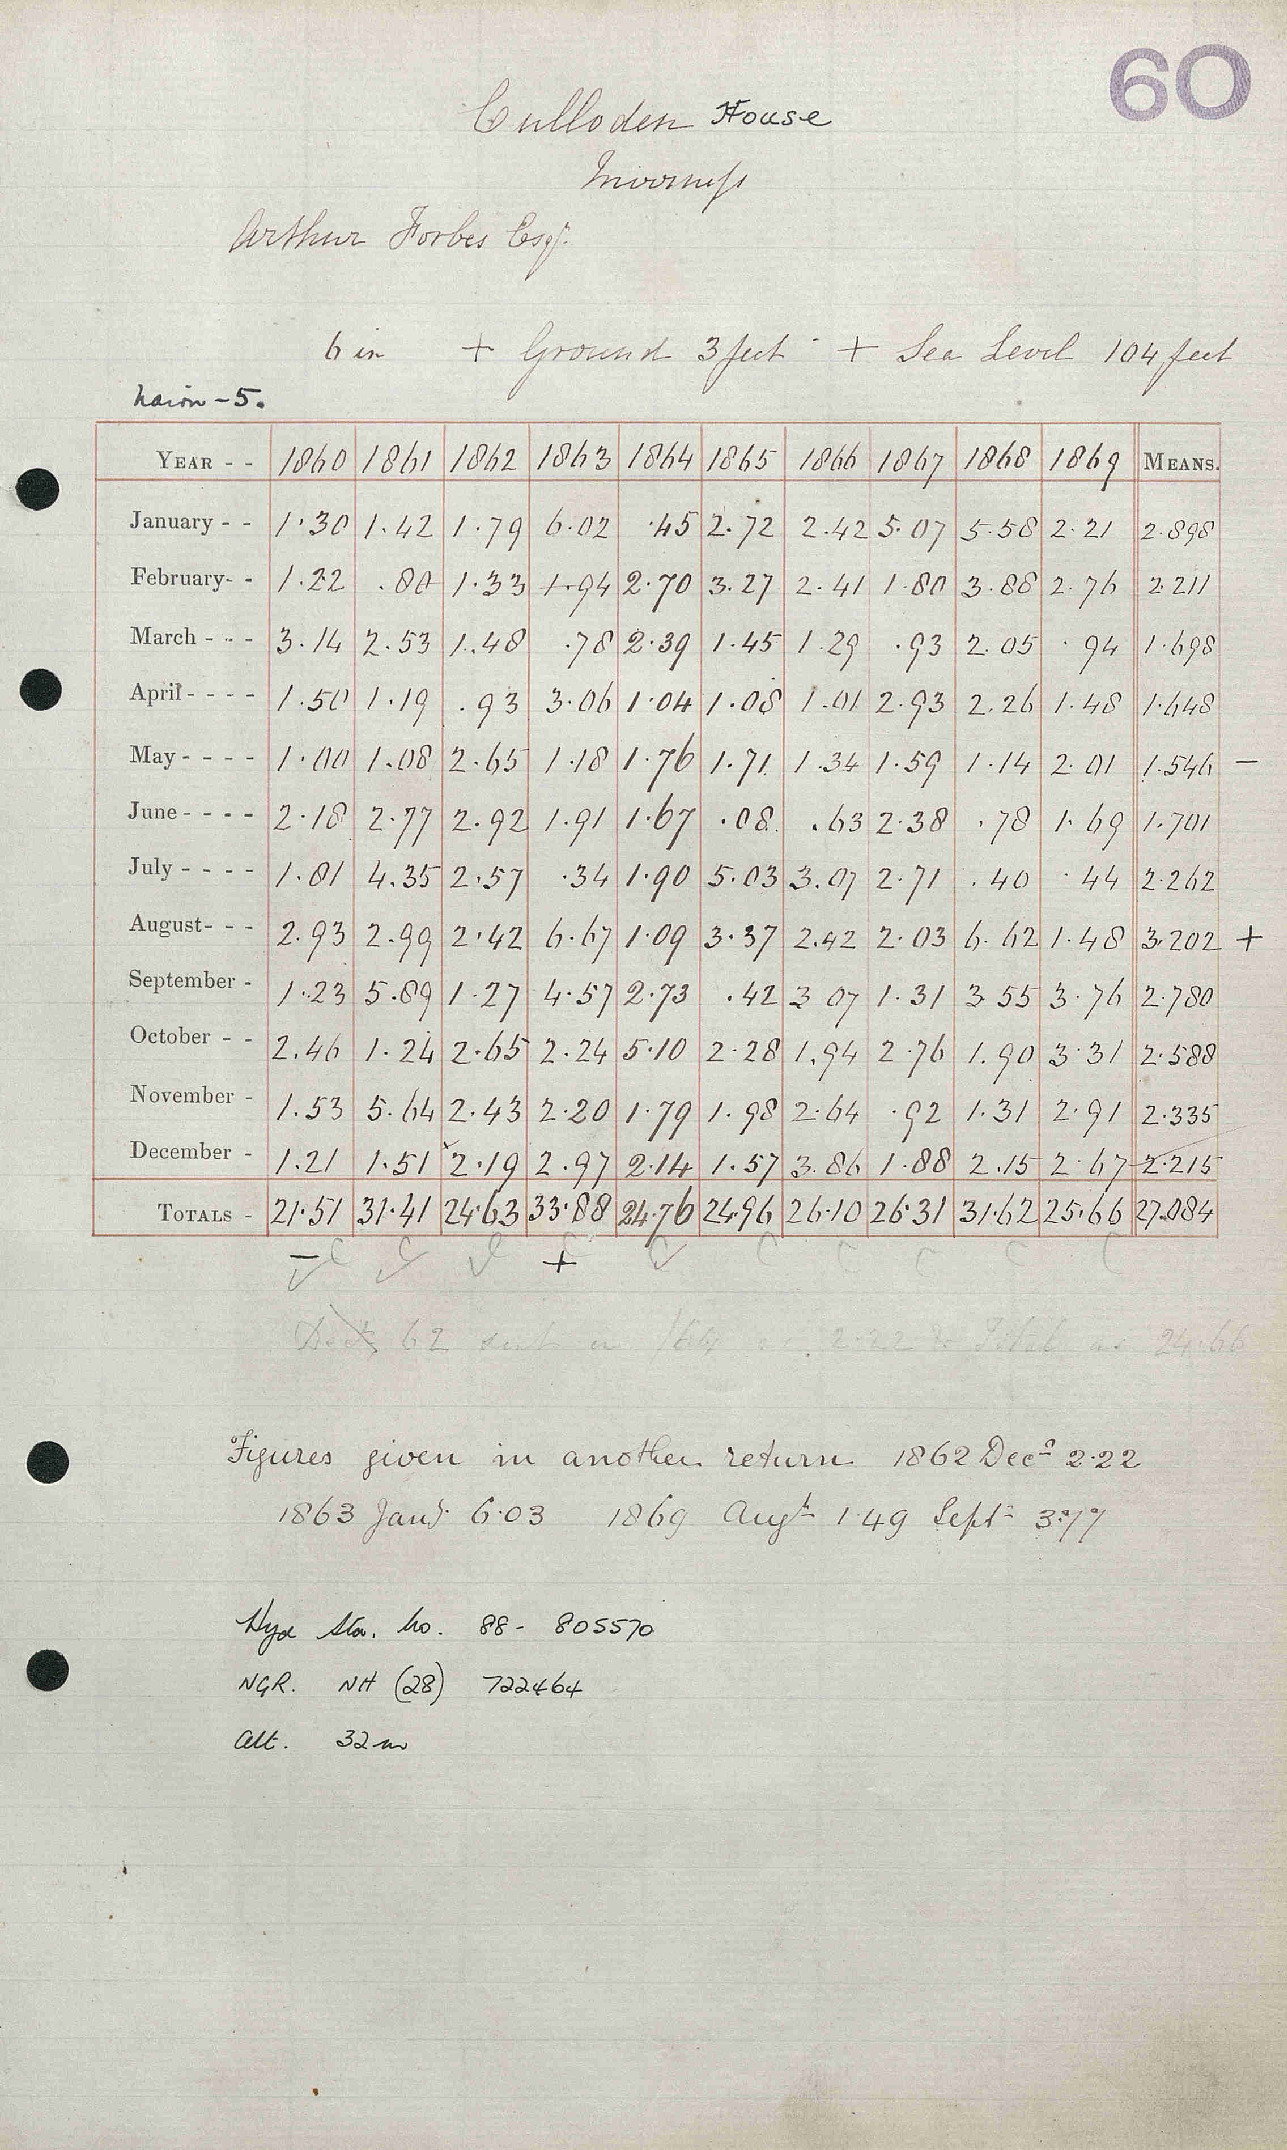 60
Culloden House
Inverness
Arthur Forbes Esqr.
6 in + Ground 3 feet + Sea Level 104 feet
Nairn - 5.
YEAR - - 1860 1861 1862 1863 1864 1865 1866 1867 1868 1869 MEANS.
January - - 1.30 1.42 1.79 6.02 .45 2.72 2.42 5.07 5.58 2.21 2.898
February- - 1.22 .80 1.33 1.94 2.70 3.27 2.41 1.80 3.88 2.76 2.211
March - - - 3.14 2.53 1.48 .78 2.39 1.45 1.29 .93 2.05 .94 1.698
April - - - - 1.50 1.19 .93 3.06 1.04 1.08 1.01 2.93 2.26 1.48 1.648
May - - - - 1.00 1.08 2.65 1.18 1.76 1.71 1.34 1.59 1.14 2.01 1.546 -
June - - - - 2.18 2.77 2.92 1.91 1.67 .08 .63 2.38 .78 1.69 1.701
July - - - - 1.81 4.35 2.57 .34 1.90 5.03 3.07 2.71 .40 .44 2.262
August- - - 2.93 2.99 2.42 6.67 1.09 3.37 2.42 2.03 6.62 1.48 3.202 +
September - 1.23 5.89 1.27 4.57 2.73 .42 3.07 1.31 3.55 3.76 2.780
October - - 2.46 1.24 2.65 2.24 5.10 2.28 1.94 2.76 1.90 3.31 2.588
November - 1.53 5.64 2.43 2.20 1.79 1.98 2.64 .92 1.31 2.91 2.335
December - 1.21 1.51 2.19 2.97 2.14 1.57 3.86 1.88 2.15 2.67 2.215
TOTALS - 21.51 31.41 24.63 33.88 24.76 24.96 26.10 26.31 31.62 25.66 27.084
- +
62 sent in 2.22 & Total as 24.66
Figures given in another return 1862 Decr 2.22
1863 Jany 6.03 1869 Augt 1.49 Sept 3.77
Hyd Sta. No. 88- 805570
NGR. NH (28) 722464
Alt. 32m